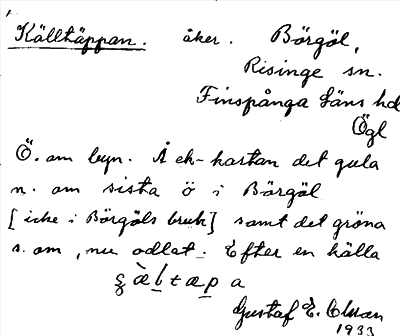 Källtäppan. åker. Börgöl,
Risinge sn.
Finspånga läns hd
Ögl
Ö. om byn. Å ek-kartan det gula
n. om sista ö i Börgöl
[icke i Börgöls bruk] samt det gröna
s. om, nu odlat. Efter en källa
Gustaf E. Olsson
1933